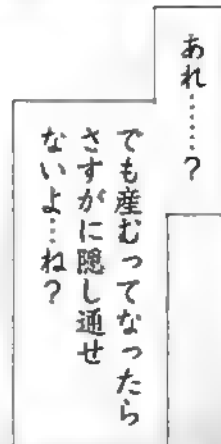 あれ……？
でも産むってなったら
さすがに隠し通せ
ないよ…ね？